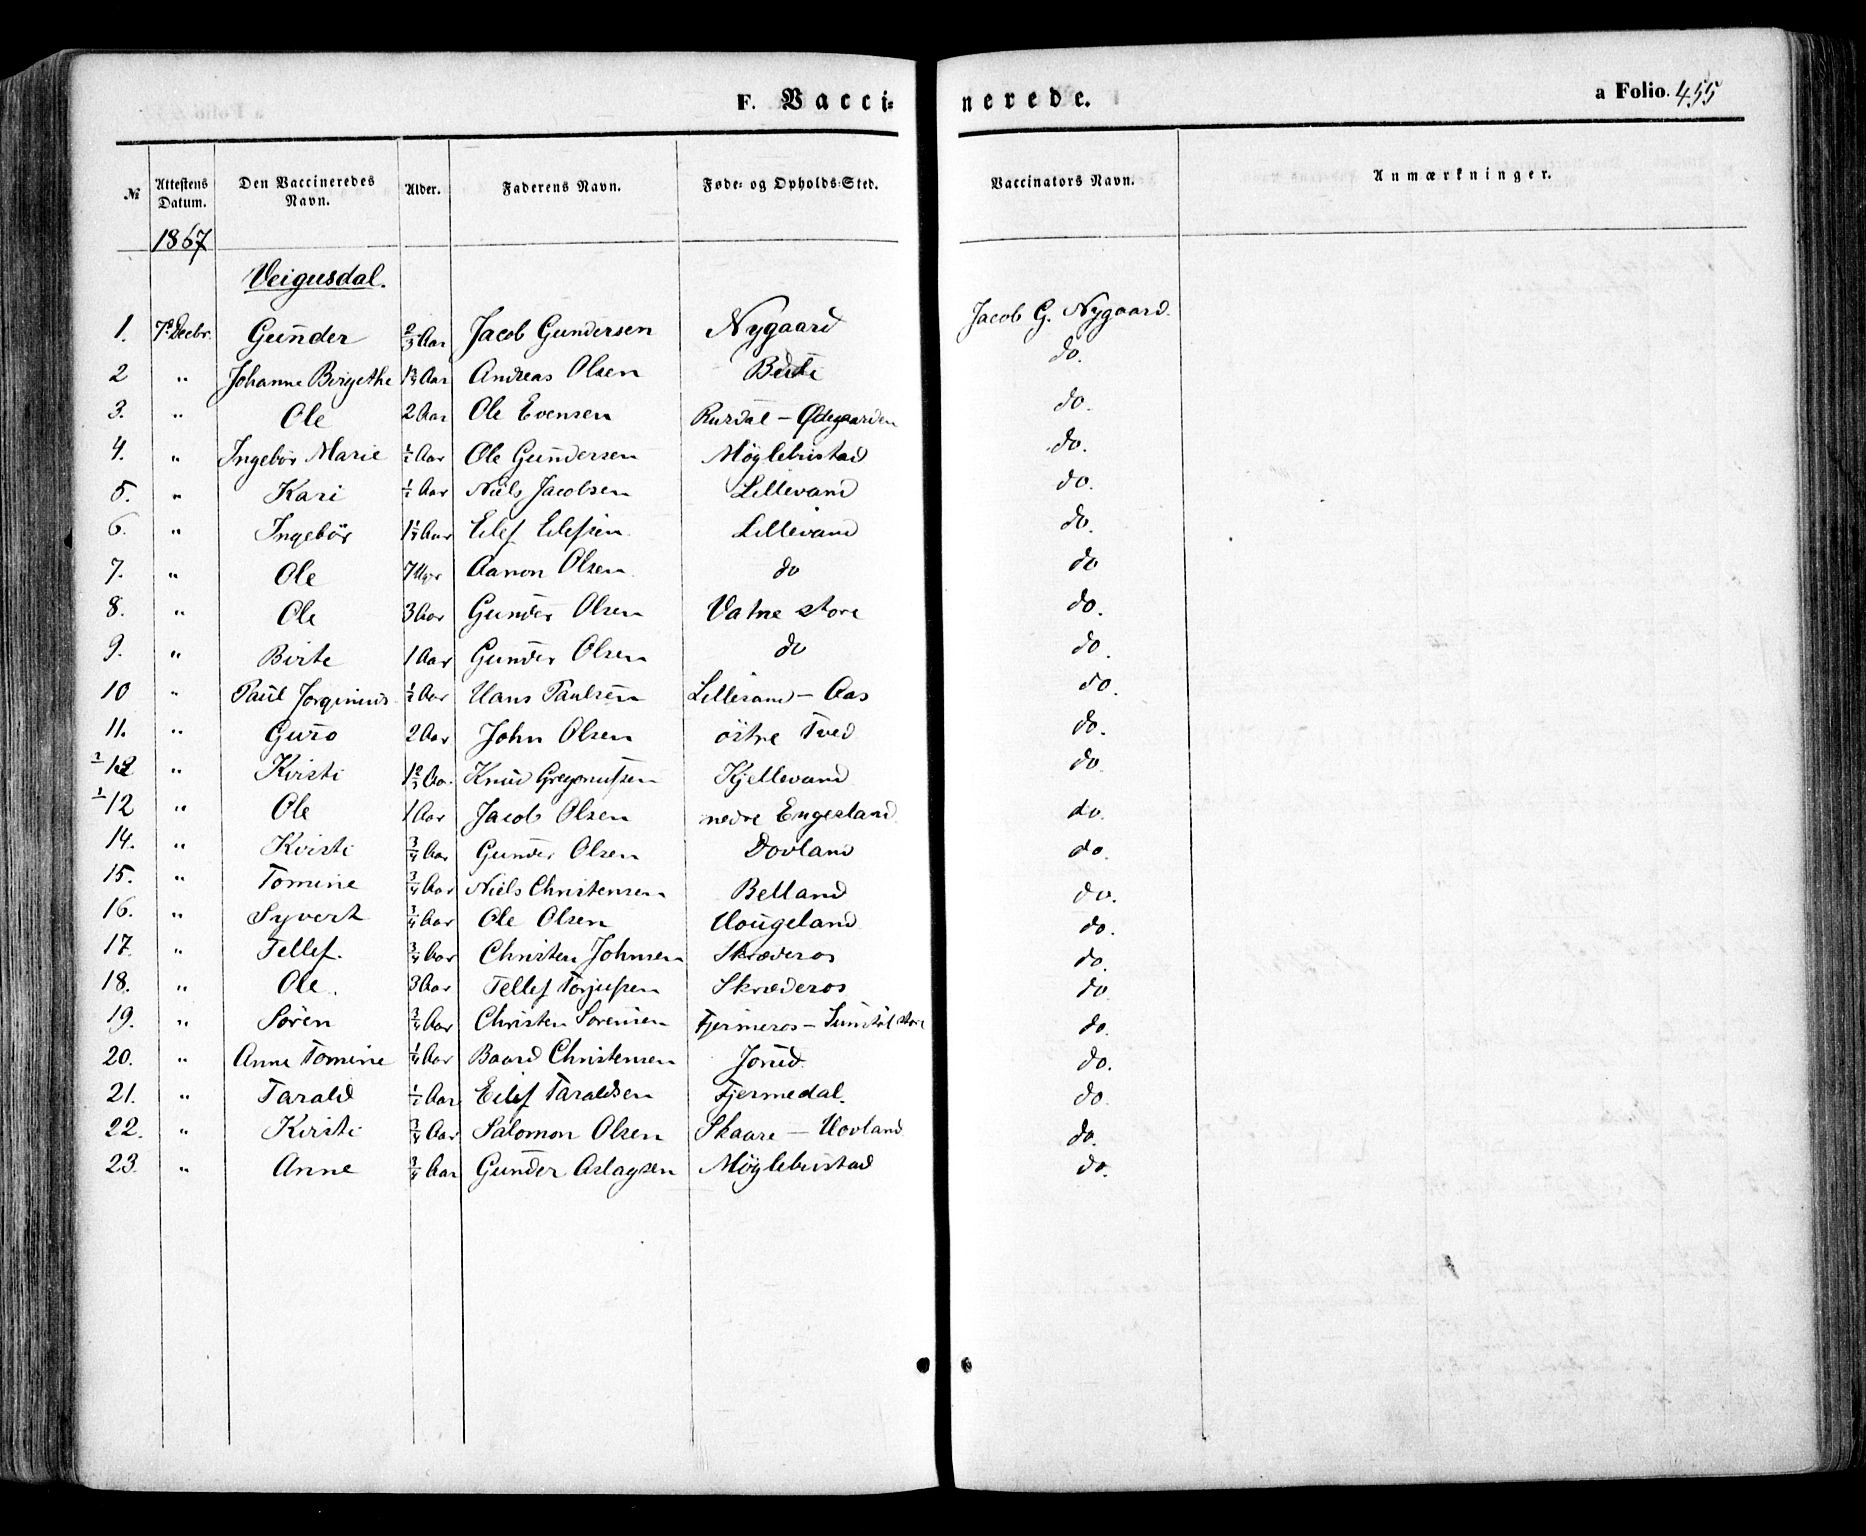 F. Vacci-nerede.
a Folio. 455
№ Attestens Datum. Den Vaccineredes Navn. Alder. Faderens Navn. Føde- og Opholds-Sted. Vaccinators Navn. Anmærkninger.
1867
Veigusdal.
1. 7de Decbr. Gunder 2/3 Aar Jacob Gundersen Nygaard Jacob G. Nygaard.
2 " Johanne Birgethe Aar Andreas Olsen do.
3. " Ole 2 Aar Ole Evensen Rusdal – Ødegaarden do.
4. " Ingebør Marie 1/2 Aar Ole Gundersen Møglebustad do.
5. " Kari 1/2 Aar Niels Jacobsen Lillevand do.
6. " Ingebør Aar Eilef Eilefsen Lillevand do.
7. " Ole 7 Uger Aanon Olsen do do
8. " Ole 3 Aar Gunder Olsen Vatne store do.
9. " Birte 1 Aar Gunder Olsen do do.
10 " Paul Jorginius 1/2 Aar Hans Paulsen Lillesand – Aas do.
11. " Guro 2 Aar John Olsen östre Tved do.
" Kirsti Aar Knud Kjellevand do.
12 " Ole 1 Aar Jacob Olsen nedre Engesland do.
14. " Kirsti 3/4 Aar Gunder Olsen Dovland do.
15. " Tomine 3/4 Aar Niels Christensen Belland do.
16. " Syvert 3/4 Aar Ole Olsen Hougeland do.
17. " Tellef. 3/4 Aar Christen Johnsen Skræderos do.
18. " Ole. 3 Aar Tellef Torjusen Skræderos do
19. " Søren 3/4 Aar Christen Sørensen Fjermeros – store do.
20. " Anne Tomine 1/4 Aar Baard Christensen do.
21. " Tarald 1/2 Aar Eilef Taraldsen Fjermedal. do
22. " Kirsti 3/4 Aar Salomon Olsen Skaare – Hovland do.
23. " Anne 3/4 Aar Gunder Aslagsen Møglebustad do.